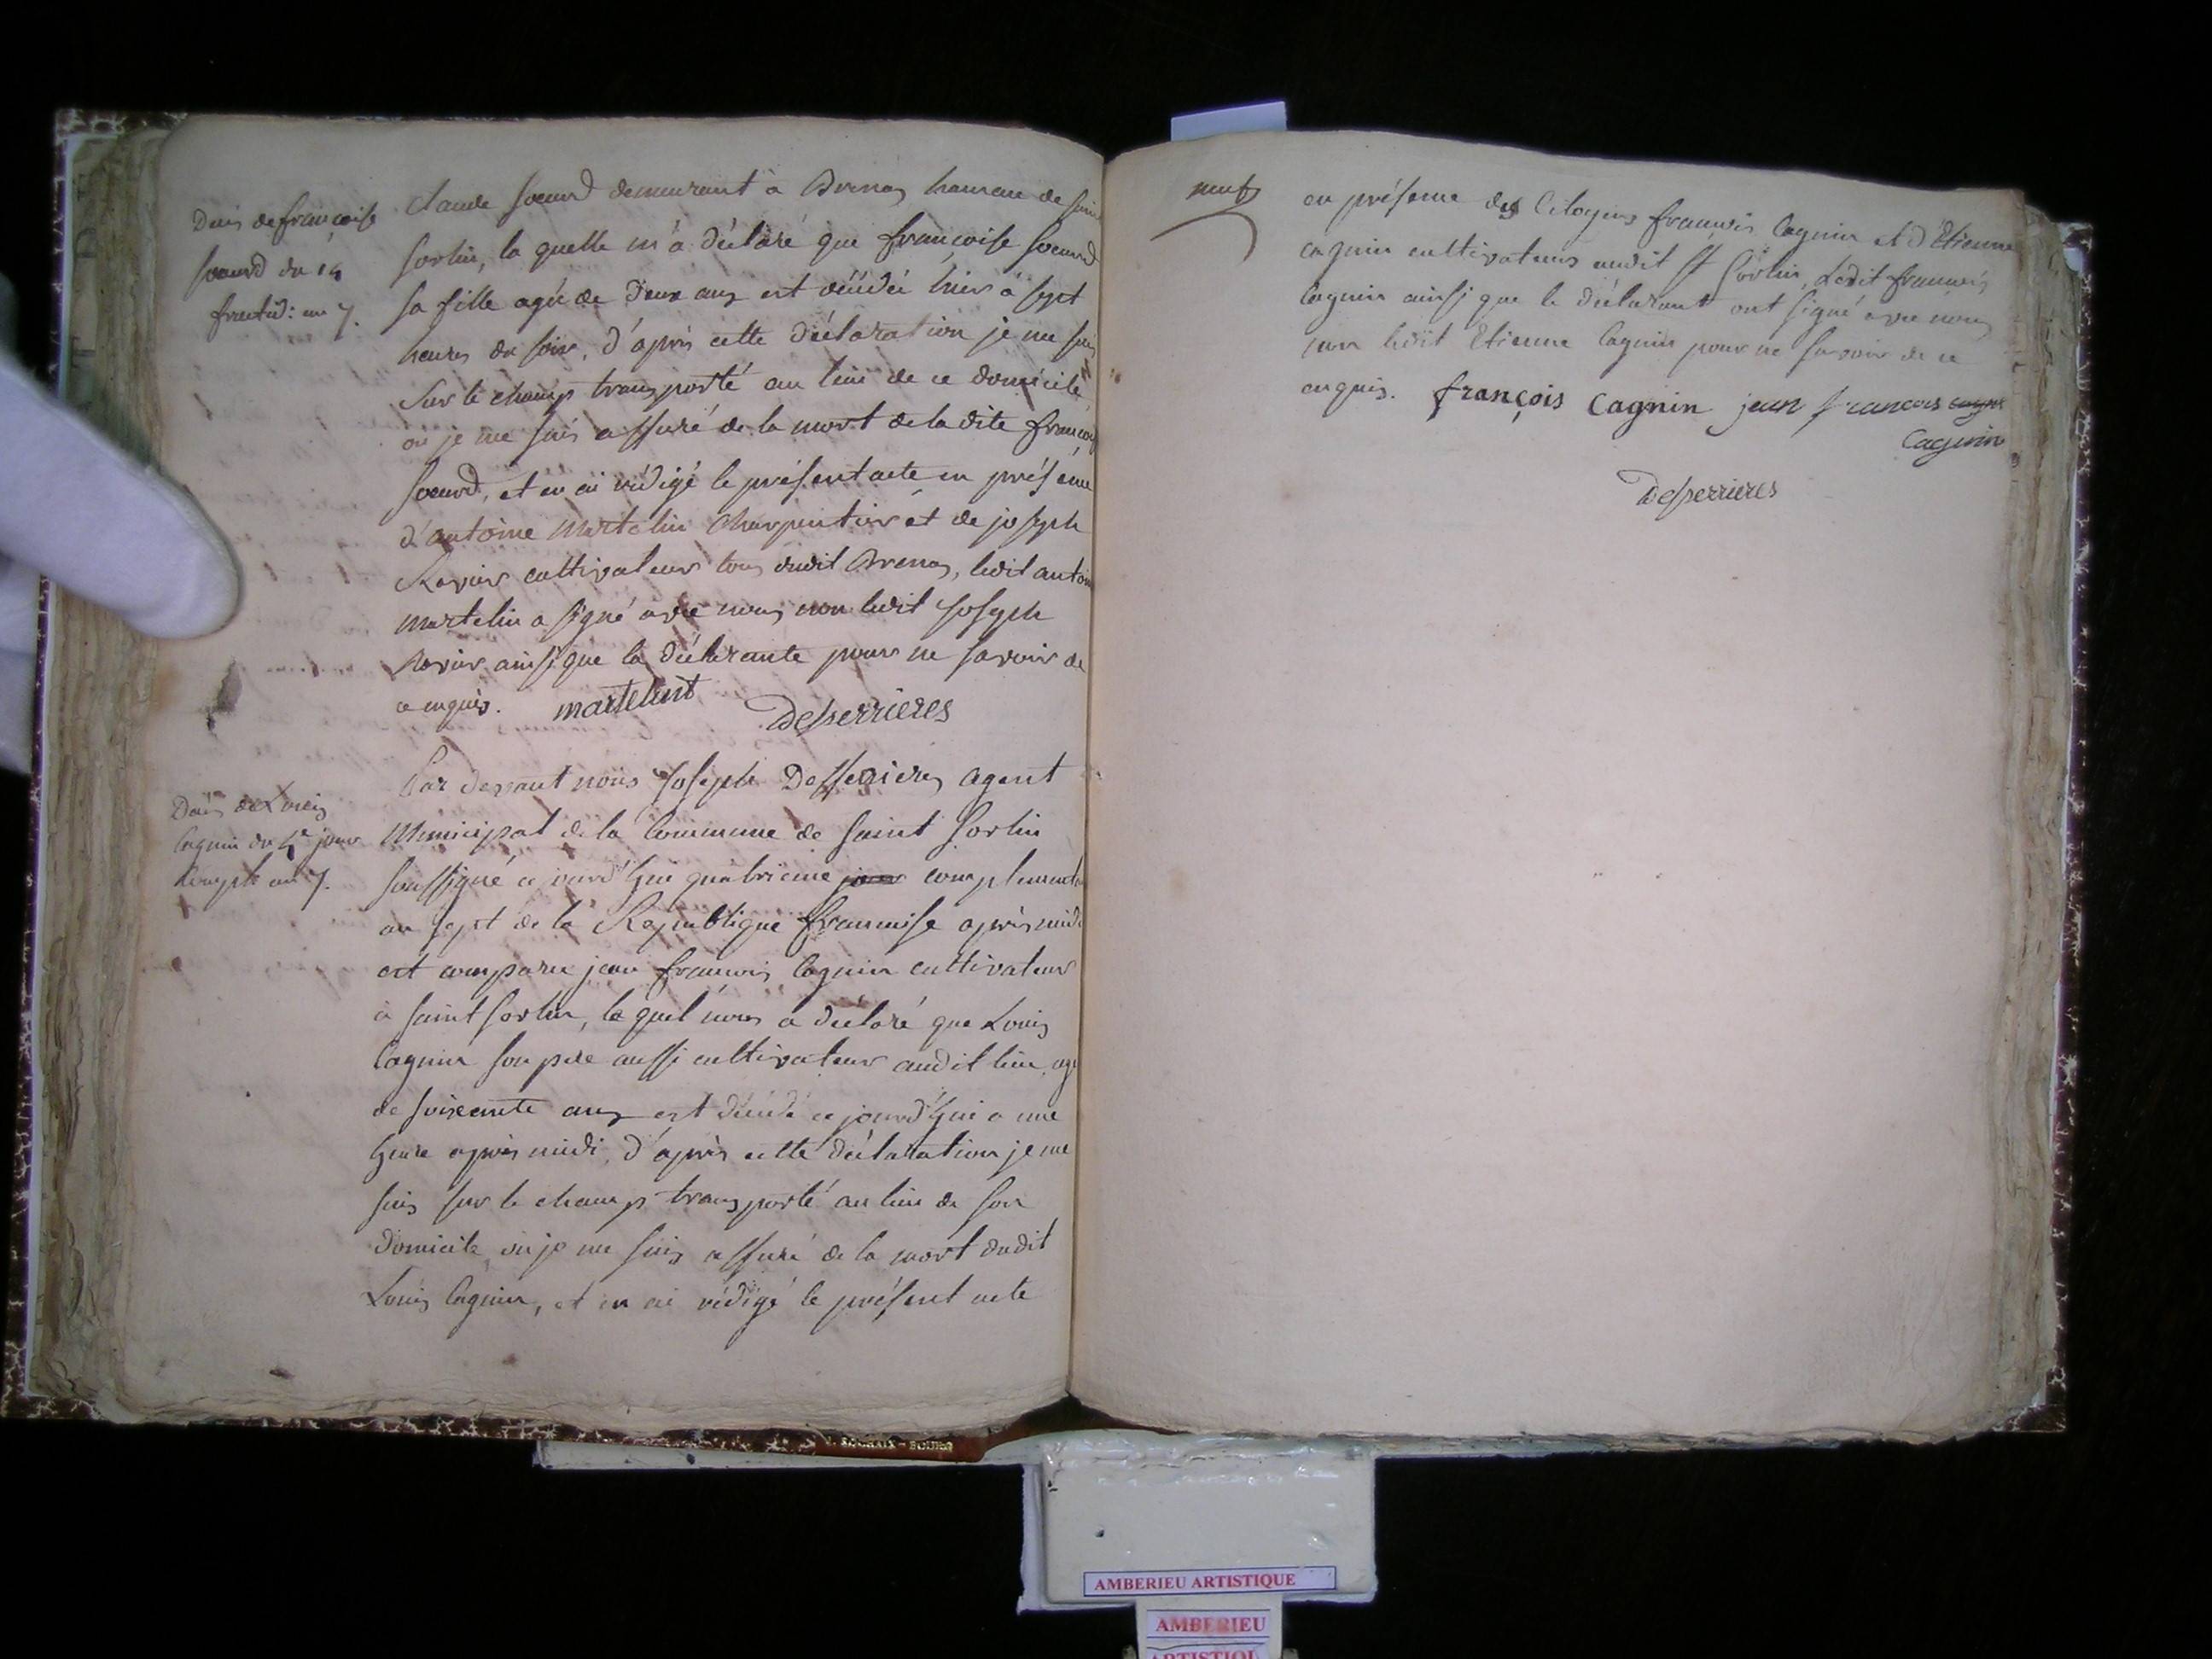 Décès de françoise
soeurd du 14
fructid: an 7.
Claude Soeurd demeurant à Brenas hameau de Saint
Sorlin, la quelle m'a déclaré que françoise Soeurd
sa fille agée de Deux ans est décédée hier à sept
heures du soir, d'après cette déclaration je me suis
sur le champs transporté au lieu de ce domicile
où je me suis assuré de la mort de la dite françoise
Soeurd, et en ai rédigé le présent acte en présence
d'antoine Martelin Charpentier et de joseph
Ravier cultivateur tous dudit Brenas, ledit antoine
martelin a signé avec nous non ledit joseph
Ravier ainsi que la déclarante pour ne savoir de
ce enquis. martelint
Desserrieres
Décès de Louis
Cagnin du 4e jour
Compl. an 7.
Par devant nous Joseph Desserrieres agent
Municipal de la Commune de Saint Sorlin
soussigné ce jourd'hui quatrieme jour complementaire
an sept de la République française après midi
est comparu jean françois Cagnin cultivateur
à Saint Sorlin, lequel nous a déclaré que Louis
Cagnin son père aussi cultivateur audit lieu, agé
de soixante ans est décédé ce jourd'hui a une
heure après midi, d'après cette déclaration je me
suis sur le champs transporté au lieu de son
domicile où je me suis assuré de la mort dudit
Louis Cagnin, et en ai rédigé le présent acte
neuf
en présence des Citoyens françois Cagnin et d'Etienne
cagnin cultivateurs audit St Sorlin, Ledit françois
Cagnin ainsi que le déclarant ont signé avec nous
non ledit Etienne Cagnin pour ne savoir de ce
enquis. françois Cagnin jean francois cagni
Cagnin
Desserrieres
AMBERIEU ARTISTIQUE
AMBERIEU
ARTISTIQUE